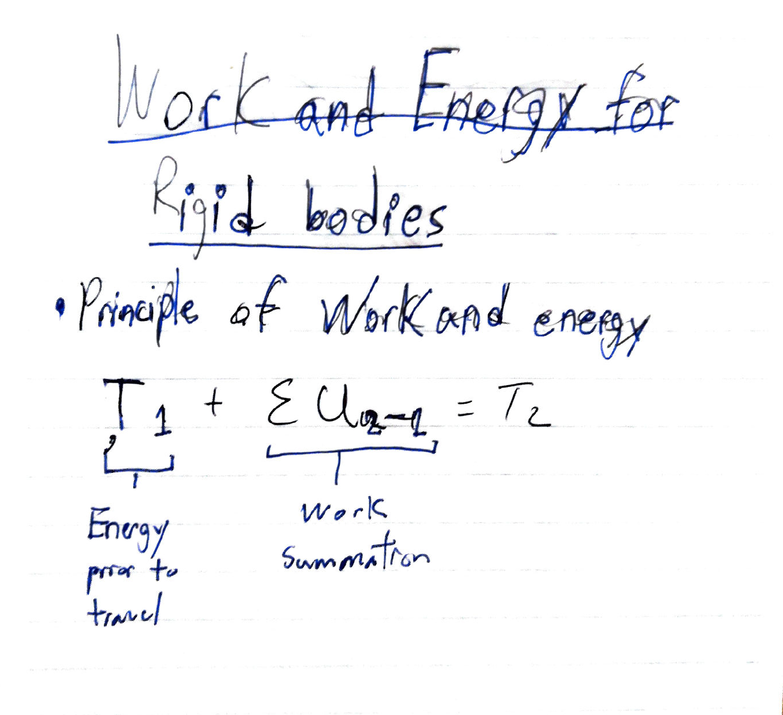 Work and Energy for
Rigid bodies
• Principle of Work and energy
T₁ + Σ U₂₋₁ = T₂
Energy
prior to
travel
Work
Summation